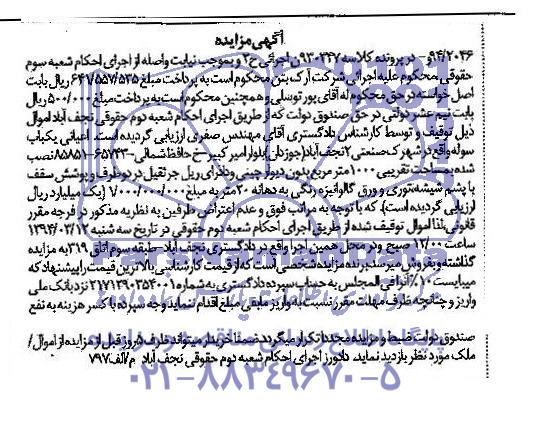 آگهی مزایده
۹۴/۲۰۴۶و- در پرونده کلاسه ۹۳۰۳۳۷ اجرائی ح۲ و بموجب نیابت واصله از اجرای احکام شعبه سوم
حقوقی محکوم علیه اجرائی شرکت آرک بتن محکوم است به پرداخت مبلغ ۶۴۷/۵۵۷/۵۲۵ ریال بابت
اصل خواسته در حق محکوم له آقای پور توسلی و همچنین محکوم است به پرداخت مبلغ ۵۰۰/۰۰۰ ریال
بابت نیم عشر دولتی در حق صندوق دولت که از طریق اجرای احکام شعبه دوم حقوقی نجف آباد اموال
ذیل توقیف و توسط کارشناس دادگستری آقای مهندس صفری ارزیابی گردیده است. اعیانی یکباب
سوله واقع در شهرک صنعتی ۲ نجف آباد (جوزدان) بلوار امیر کبیر-خ حافظ شمالی-۶۵۷۴۳-۸۵۸۵۱ نصب
شده بمساحت تقریبی ۱۰۰۰ متر مربع بدون دیوار چینی و دارای ریل جرثقیل در دو طرف و پوشش سقف
با پشم شیشه، توری و ورق گالوانیزه رنگی به دهانه ۲۰ متر به مبلغ ۱/۰۰۰/۰۰۰/۰۰۰ (یک میلیارد ریال
ارزیابی گردیده است). که با توجه به مراتب فوق و عدم اعتراض طرفین به نظریه مذکور در فرجه مقرر
قانونی، لذا اموال توقیف شده از طریق اجرای احکام شعبه دوم حقوقی در تاریخ سه شنبه ۱۳۹۴/۰۳/۱۲
ساعت ۱۲/۰۰ صبح و در محل همین اجرا واقع در دادگستری نجف آباد-طبقه سوم اتاق ۳۱۹ به مزایده
گذاشته و بفروش میرسد. برنده مزایده شخصی است که از قیمت کارشناسی بالاترین قیمت را پیشنهاد که
میبایست ۱۰٪ از آن فی المجلس به حساب سپرده دادگستری به شماره ۲۱۷۱۲۹۰۳۵۴۰۰۱ نزد بانک ملی
واریز و چنانچه ظرف مهلت مقرر نسبت به واریز مابقی مبلغ اقدام ننماید وجه سپرده با کسر هزینه به نفع
صندوق دولت ضبط و مزایده مجددا تکرار میگردد. ضمنا خریدار میتواند ظرف ۵ روز قبل از مزایده از اموال/
ملک مورد نظر بازدید نماید. دادورز اجرای احکام شعبه دوم حقوقی نجف آباد م/الف ۷۹۷
ParsNamadData
پایگاه اطلاع رسانی مناقصه و مزایده
۰۲۱-۸۸۳۴۹۶۷۰-۵